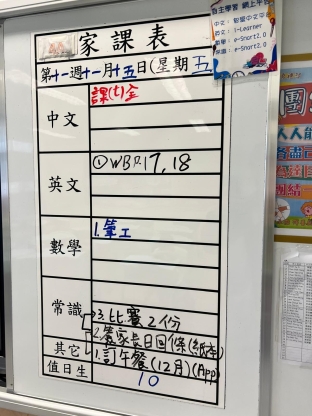 家課表
第十一週十一月十五日(星期五
中文
課(七)全
英文
①WB P.17,18
數學
1.筆工
常識
3.比賽2份
其它
2.簽家長日回條(紙本)
1.訂午餐(12月)(App)
值日生
10
自主學習 網上平台
i-Learner
e-Smart2.0
e-Smart2.0
團
人人能
者盡
團結